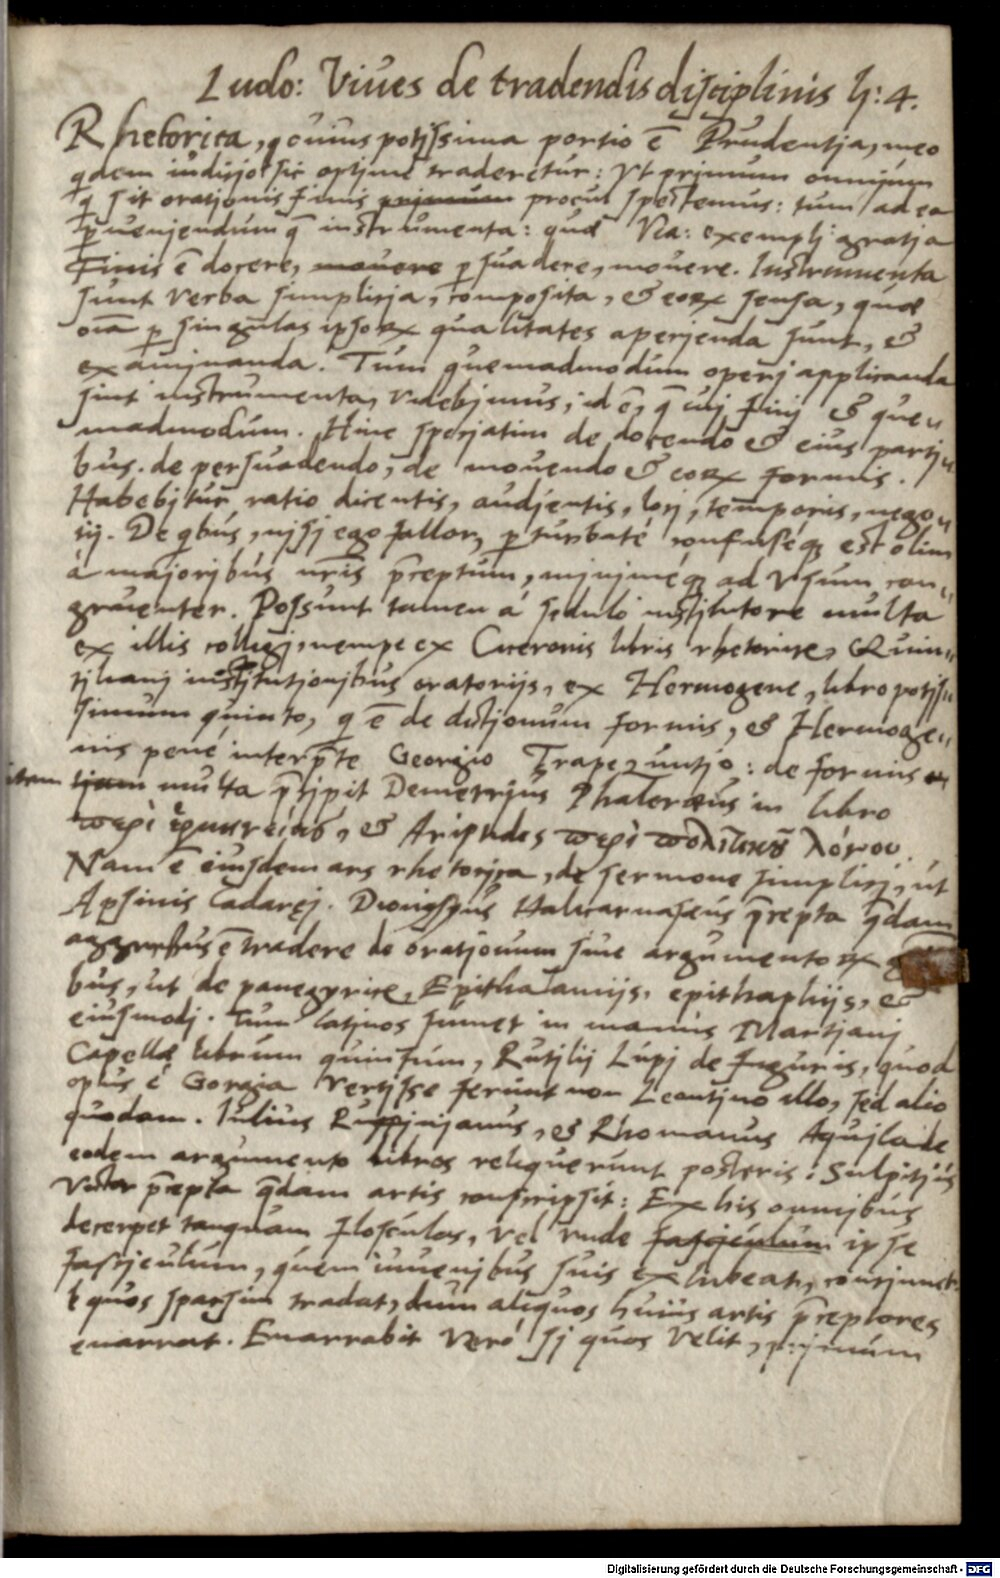 Ludo: Viues de tradendis disciplinis li: 4.
Rhetorica, cuius potissima portio ē Prudentia, meo
qdem iudicio sic optime traderetur: Vt primum omnium
q sit orationis finis primum procul spectemus: tum ad eā
pueniendum q instrumenta: quæ Via: exempli gratia
Finis ē docere, mouere psuadere, mouere. Instrumenta
sunt Verba simplicia, composita, & eoꝝ sensa, quæ
oīa p singulas ipsoꝝ qualitates aperienda sunt, &
examinanda. Tum quemadmodum operi applicanda
sint instrumenta, videbimus, id ē, q cui fini & que〃
madmodum. Hinc speciatim de docendo & eius parti〃
bus. de persuadendo, de mouendo & eoꝝ formis.
Habebitur ratio dicentis, audientis, loci, temporis, nego〃
tij. De qbus, nisi ego fallor, pturbaté confuseq́ꝫ est olim
á maioribus nr̄is p̄ceptum, minimeq́ꝫ ad vsum con〃
gruenter. Possunt tamen á sedulo institutore multa
ex illis colligi, nempe ex Ciceronis libris rhetoricæ, Quin〃
tiliani institutionibus oratorijs, ex Hermogene, libro potis〃
simum quinto, q ē de dictionum formis, & Hermoge〃
nis pené interp̄te Georgio Trapezuntio: de formis
item tiam multa p̄cipit Demetrius Phalereus in libro
περὶ ἑρμηνείας, & Aristides περὶ πολιτικοῦ λόγου.
Nam ē eiusdem ars rhetorica, de sermone simplici, ut
Apsinis Cadaręi. Dionysius Halicarnaseus p̄cepta q̄dam
aggressus ē tradere de orationum siue argumentoꝝ
bus, ut de panegyrice, Epithalamijs, epithaphijs, &
eiusmodi. Tum latinos sumet in manus Martiani
Capellæ librum quintum, Rutilij Lupi de Figuris, quod
opus é Gorgia Vertisse ferunt non Leontino illo, sed alio
quodam. Iulius Ruffinianus, & Rhomanus Aquila de
eodem argumento libros reliquerunt posteris: Sulpitius
Victor p̄cepta q̄dam artis conscripsit: Ex his omnibus
decerpet tanquam flosculos, vel vnde fasciculum ipse
fasciculum, quem iuuenibus suis exhibeat, coniunct.
l quos sparsim tradat, dum aliquos huius artis p̄ceptores
enarrat. Enarrabit Veró si quos velit, primum